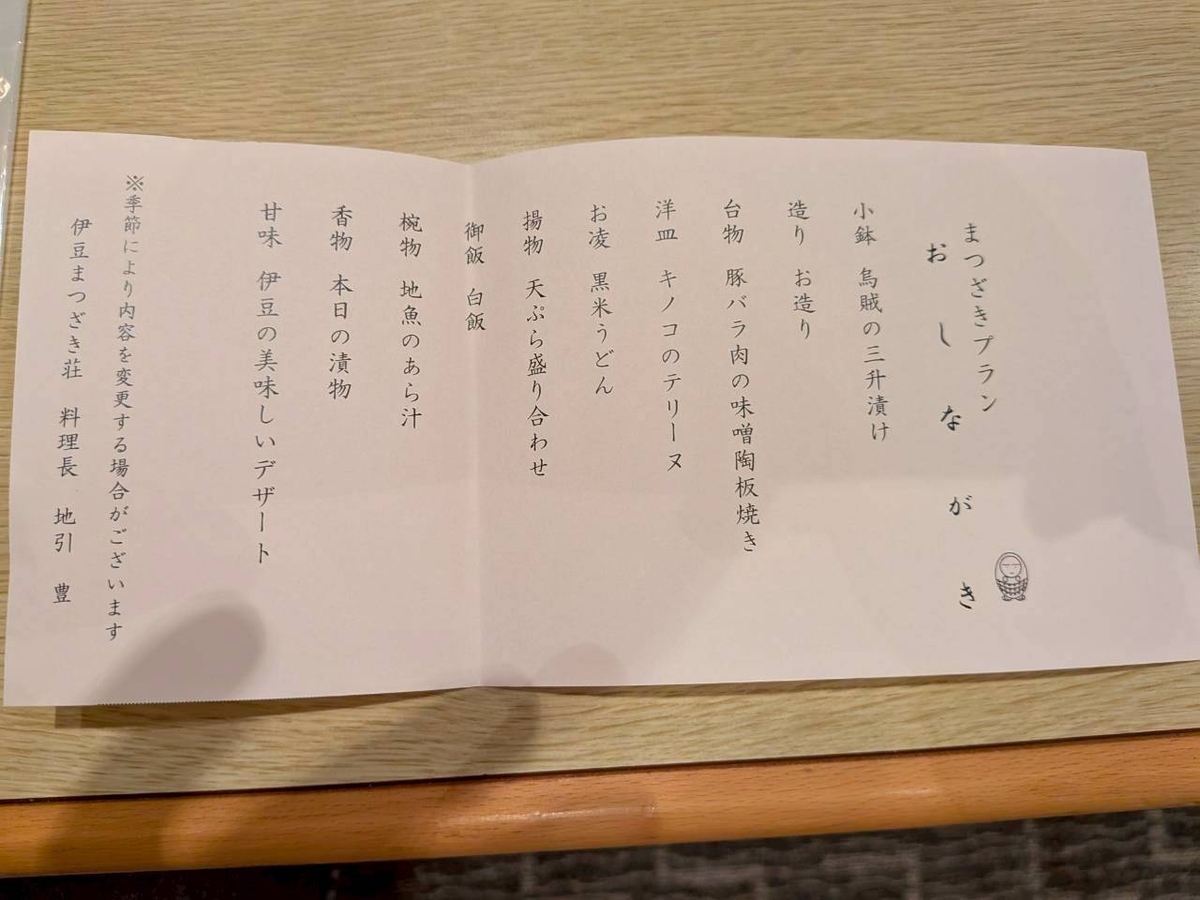 まつざきプラン
おしながき
小鉢　烏賊の三升漬け
造り　お造り
台物　豚バラ肉の味噌陶板焼き
洋皿　キノコのテリーヌ
お凌　黒米うどん
揚物　天ぷら盛り合わせ
御飯　白飯
椀物　地魚のあら汁
香物　本日の漬物
甘味　伊豆の美味しいデザート
※季節により内容を変更する場合がございます
伊豆まつざき荘　料理長　地引　豊